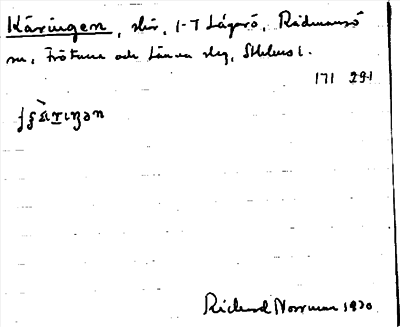 Käringen, skär, 1-7 Lågarö, Rådmansö
sn, Frötuna och Länna skg, Sthlms l.
171 291
Richard Norrman 1930